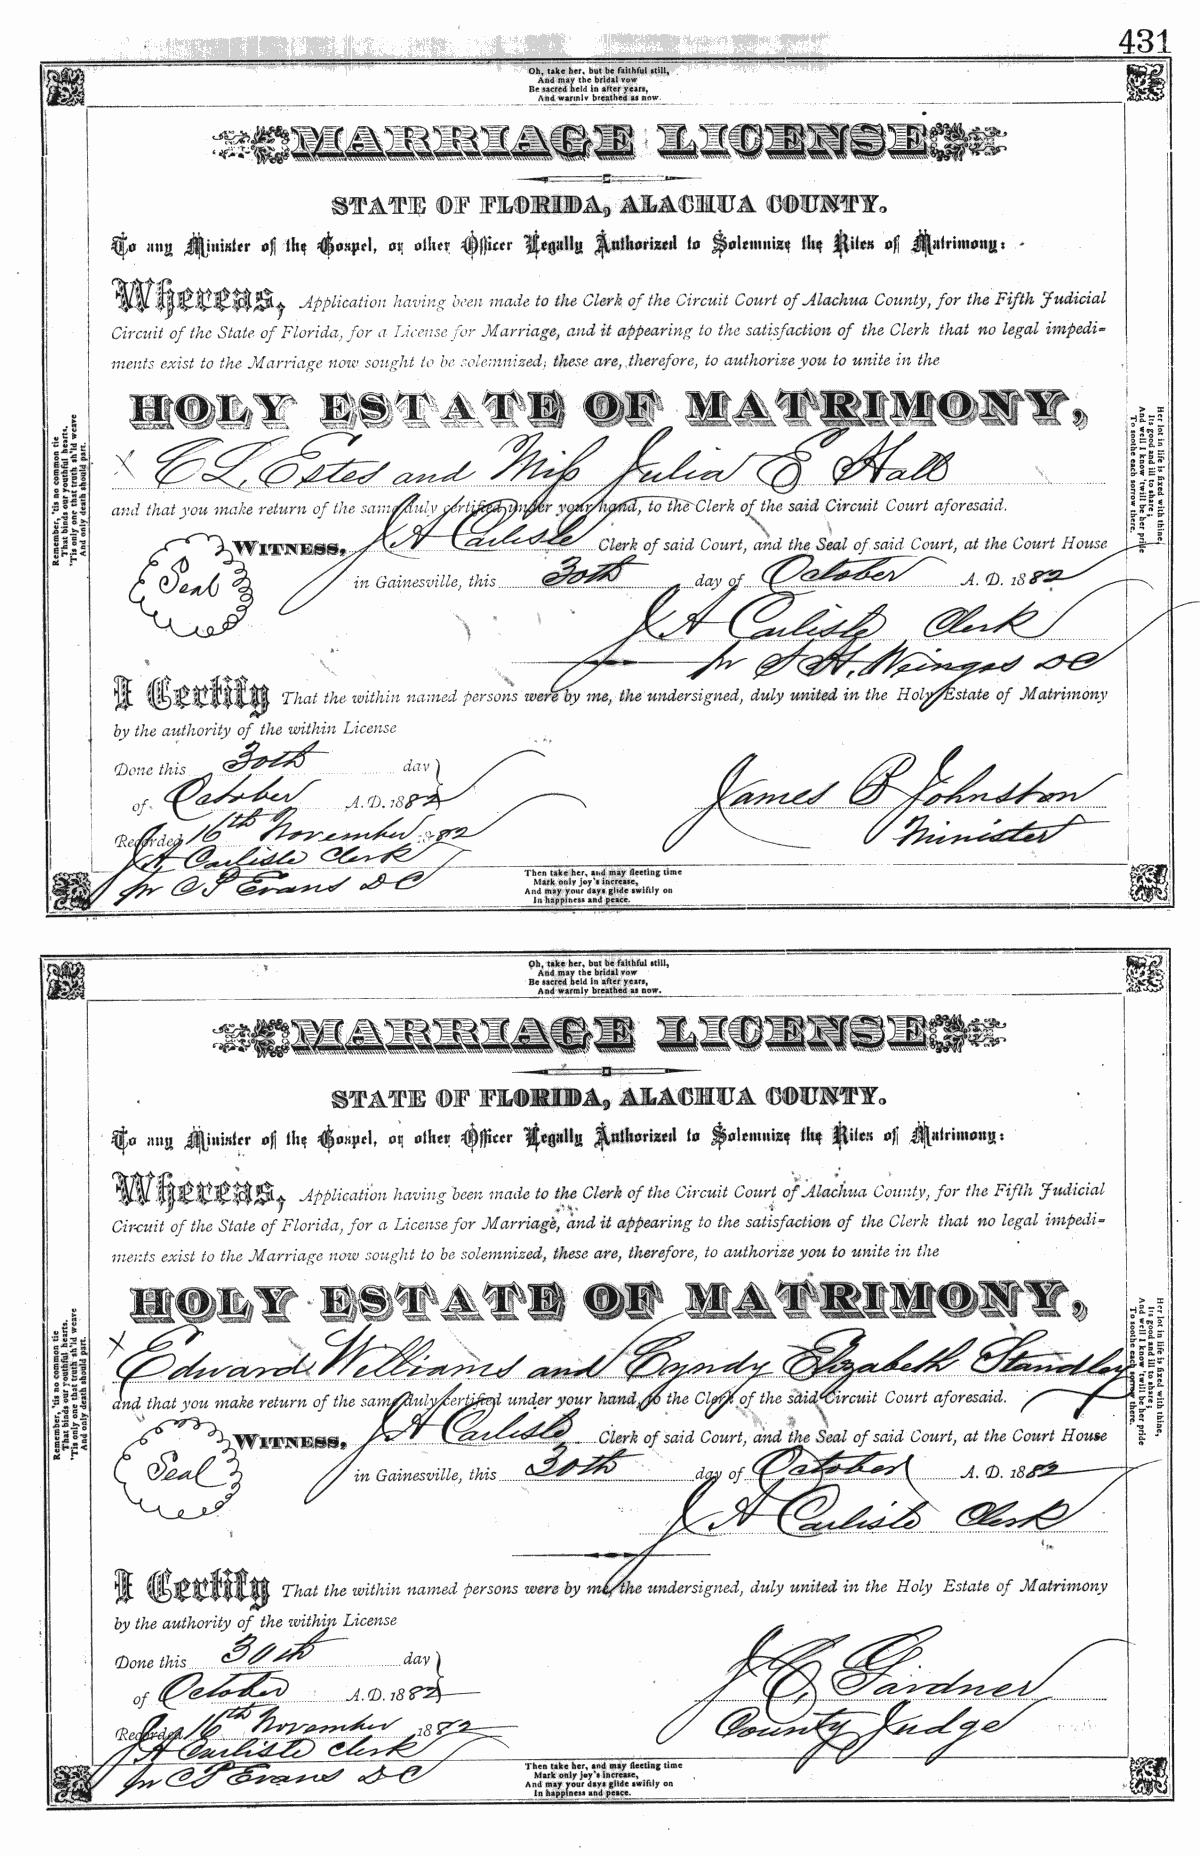 431
Oh, take her, but be faithful still,
And may the bridal vow
Be sacred held in after years,
And warmly breathed as now.
MARRIAGE LICENSE
STATE OF FLORIDA, ALACHUA COUNTY.
To any Minister of the Gospel, or other Officer Legally Authorized to Solemnize the Rites of Matrimony:
Whereas, Application having been made to the Clerk of the Circuit Court of Alachua County, for the Fifth Judicial
Circuit of the State of Florida, for a License for Marriage, and it appearing to the satisfaction of the Clerk that no legal impedi-
ments exist to the Marriage now sought to be solemnized; these are, therefore, to authorize you to unite in the
HOLY ESTATE OF MATRIMONY,
X C L. Estes and Miss Julia E Hall
and that you make return of the same duly certified under your hand, to the Clerk of the said Circuit Court aforesaid.
Seal
WITNESS, J A Carlisle Clerk of said Court, and the Seal of said Court, at the Court House
in Gainesville, this 30th day of October A. D. 1882
J A Carlisle Clerk
pr S. H. Weingas DC
I Certify That the within named persons were by me, the undersigned, duly united in the Holy Estate of Matrimony
by the authority of the within License
Done this 30th day
of October A. D. 1882
James B Johnston
Minister
Recorded 16th November 1882
J A Carlisle Clerk
pr C P Evans DC
Remember, 'tis no common tie
That binds our youthful hearts,
'Tis only one that truth sh'ld weave
And only death should part.
Her lot in life is fixed with thine,
Its good and ill to share;
And well I know 'twill be her pride
To soothe each sorrow there.
Then take her, and may fleeting time
Mark only joy's increase,
And may your days glide swiftly on
In happiness and peace.
Oh, take her, but be faithful still,
And may the bridal vow
Be sacred held in after years,
And warmly breathed as now.
MARRIAGE LICENSE
STATE OF FLORIDA, ALACHUA COUNTY.
To any Minister of the Gospel, or other Officer Legally Authorized to Solemnize the Rites of Matrimony:
Whereas, Application having been made to the Clerk of the Circuit Court of Alachua County, for the Fifth Judicial
Circuit of the State of Florida, for a License for Marriage, and it appearing to the satisfaction of the Clerk that no legal impedi-
ments exist to the Marriage now sought to be solemnized, these are, therefore, to authorize you to unite in the
HOLY ESTATE OF MATRIMONY,
X Edward Williams and Cyndy Elizabeth Standley
and that you make return of the same duly certified under your hand, to the Clerk of the said Circuit Court aforesaid.
Seal
WITNESS, J A Carlisle Clerk of said Court, and the Seal of said Court, at the Court House
in Gainesville, this 30th day of October A. D. 1882
J A Carlisle Clerk
I Certify That the within named persons were by me, the undersigned, duly united in the Holy Estate of Matrimony
by the authority of the within License
Done this 30th day
of October A. D. 1882
J C. Gardner
County Judge
Recorded 16th November 1882
J A Carlisle Clerk
pr C P Evans DC
Remember, 'tis no common tie
That binds our youthful hearts,
'Tis only one that truth sh'ld weave
And only death should part.
Her lot in life is fixed with thine,
Its good and ill to share;
And well I know 'twill be her pride
To soothe each sorrow there.
Then take her, and may fleeting time
Mark only joy's increase,
And may your days glide swiftly on
In happiness and peace.